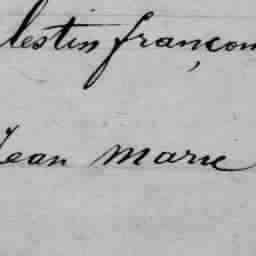 lestin françom
Jean Marie